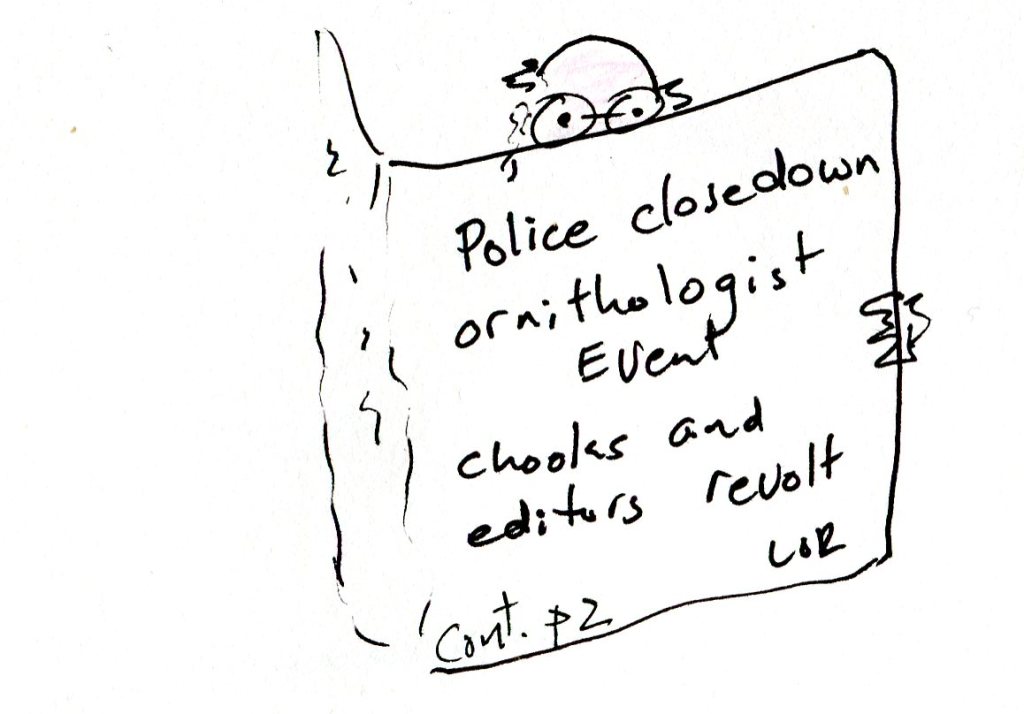 Police closedown
ornithologist
Event
chooks and
editors revolt
LOR
Cont. p2